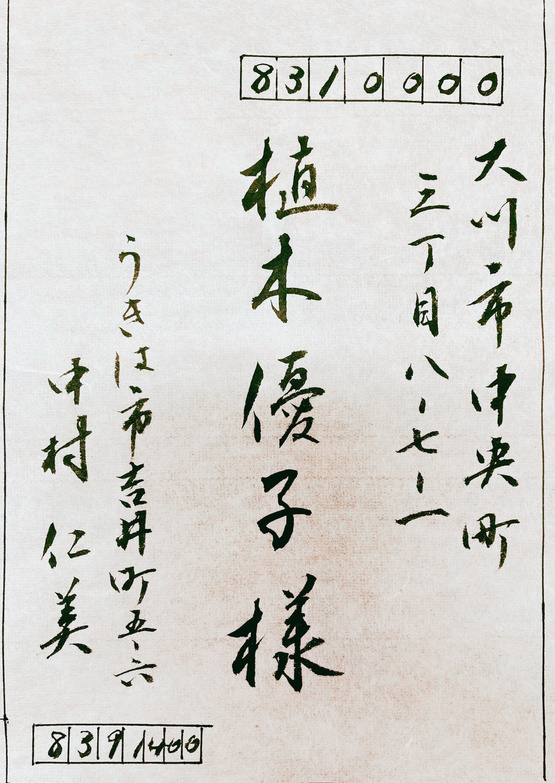 8310000
大川市中央町
三丁目八-七-一
植木優子様
うきは市吉井町五-六
中村 仁美
8391400